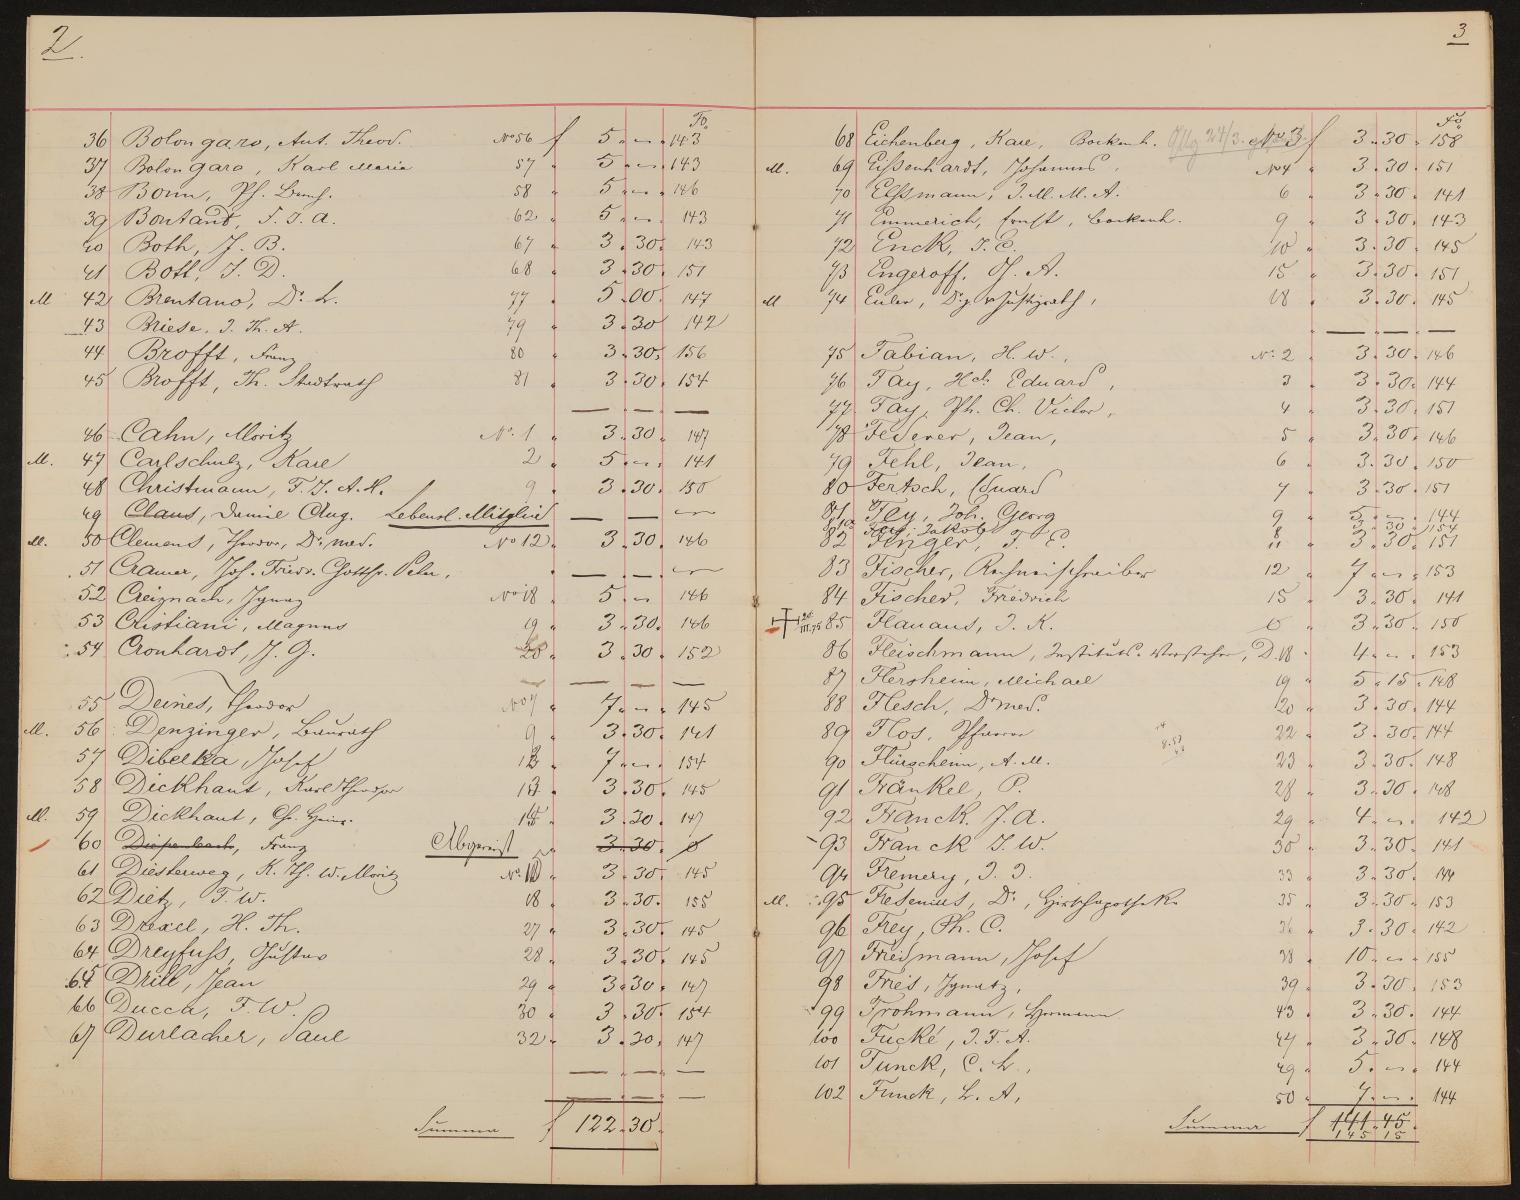 2.
Fo.
36 Bolongaro, Ant. Theod. No 56 f 5 " — " 143
37 Bolongaro, Karl Maria 57 " 5 " — " 143
38 Bonn, Ph. 58 " 5 " — " 146
39 Bontant, F. J. A. 62 " 5 " — " 143
40 Both, J. B. 67 " 3 " 30 " 143
41 Bott, J. D. 68 " 3 " 30 " 151
M. 42 Brentano, Dr. L. 77 " 5 " 00 " 147
43 Briese, J. Th. A. 79 " 3 " 30 142
44 Brofft, Franz 80 " 3 " 30 " 156
45 Brofft, Th. Stadtrath 81 " 3 " 30 " 154
— " — " —
46 Cahn, Moritz No. 1 " 3 " 30 " 147
M. 47 Carl schulz, Karl 2 " 5 " — " 141
48 Christmann, F. J. A. H. 9 " 3 " 30 " 150
49 Claus, Daniel Aug. Lebensl. Mitglied — — —
M. 50 Clemens, Theodor, Dr. med. No 12 " 3 " 30 " 146
51 Cramer, Joh. Friedr. Gotthr. Sohn, " — " — " —
52 Creiznach, Ignaz No 18 " 5 " — 146
53 Cristiani, Magnus 19 " 3 " 30 " 146
54 Cronhardt, J. G. 20 " 3 " 30 " 152
— " — " — " —
55 Deines, Theodor No 7 " 7 " — " 145
M. 56 Denzinger, Baurath 9 " 3 " 30 " 141
57 Dibelka, Josef " 7 " — " 154
58 Dickhaut, Karl Theodor " 3 " 30 " 145
M. 59 Dickhaut, Ch. Heinr. " 3 " 30 " 147
60 Diefenbach, Franz Abgereist " 3 " 30 " 0
61 Diesterweg, K. Th. W. Moritz No. " 3 " 30 " 145
62 Dietz, F. W. 18 " 3 " 30 " 155
63 Drexel, H. Th. 27 " 3 " 30 " 145
64 Dreyfuss, Gustav 28 " 3 " 30 " 145
65 Drill, Jean 29 " 3 " 30 " 147
66 Ducca, F. W. 30 " 3 " 30 " 154
67 Durlacher, Paul 32 " 3 " 30 " 147
— " — " —
— " — " —
Summa f 122 " 30 "
3
Fo.
68 Eichenberg, Karl, Bockenh. 24/3. No 3 f 3 " 30 " 158
M. 69 Eißenhardt, Johannes, No 4 " 3 " 30 " 151
70 Elssmann, J. M. M. A. 6 " 3 " 30 " 141
71 Emmerich, Ernst, Bockenh. 9 " 3 " 30 " 143
72 Enck, J. C. 10 " 3 " 30 " 145
73 Engeroff, J. A. 15 " 3 " 30 " 151
M 74 Euler, Dr. j. Justizrath, 18 " 3 " 30 " 145
" — " — " —
75 Fabian, H. W., No. 2 " 3 " 30 " 146
76 Fay, Hch. Eduard, 3 " 3 " 30 " 144
77 Fay, Ph. Ch. Victor, 4 " 3 " 30 " 151
78 Federer, Jean, 5 " 3 " 30 " 146
79 Fehl, Jean, 6 " 3 " 30 " 150
80 Fertsch, Eduard 7 " 3 " 30 " 151
81 Fey, Joh. Georg 9 " 5 " — " 144
81a Fey, Jakob 8 3 " 30 " 154
82 Finger, F. E. 11 " 3 " 30 " 151
83 Fischer, Rechneischreiber 12 " 7 " — " 153
84 Fischer, Friedrich 15 " 3 " 30 " 141
III.75 85 Flauaus, J. K. 0 " 3 " 30 " 150
86 Fleischmann, Instituts-Vorsteher, D. 18 " 4 " — " 153
87 Flersheim, Michael 19 " 5 " 15 " 148
88 Flesch, Dr med. 20 " 3 " 30 " 144
89 Flos, Pfarrer 22 " 3 " 30 " 144
90 Flürscheim, A. M. 23 " 3 " 30 " 148
91 Fränkel, P. 28 " 3 " 30 " 148
92 Franck, J. A. 29 " 4 " — " 142
93 Franck J. W. 30 " 3 " 30 " 141
94 Fremery, J. J. 33 " 3 " 30 " 144
M. 95 Fresenius, Dr., Hirschapotheke 35 " 3 " 30 " 153
96 Frey, Ph. C. 36 " 3 " 30 " 142
97 Friedmann, Josef 38 " 10 " — " 155
98 Fries, Ignatz, 39 " 3 " 30 " 153
99 Frohmann, Hermann 43 " 3 " 30 " 144
100 Fucké, J. F. A. 47 " 3 " 30 " 148
101 Funck, C. L., 49 " 5 " — " 144
102 Funck, L. A, 50 " 7 " — " 144
Summa f 141 " 45 "
145 15